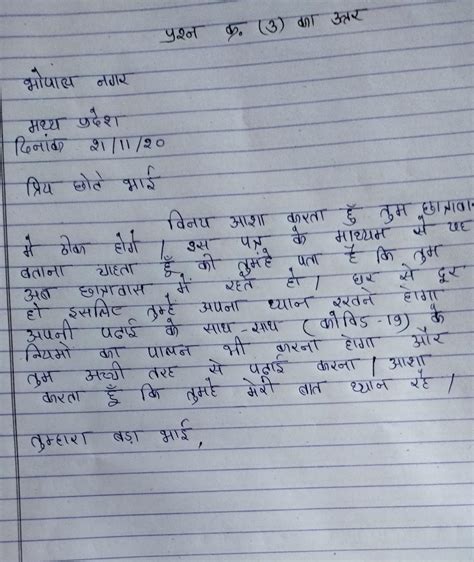 प्रश्न क्र. (3) का उत्तर
भोपाल नगर
मध्य प्रदेश
दिनांक 21/11/20
प्रिय छोटे भाई
विनय आशा करता हुँ तुम छात्रावास
मे ठीक होगे / इस पत्र के माध्यम से यह
बताना चाहता हुँ की तुम्हे पता है कि तुम
अब छात्रावास में रहते हो / घर से दूर
हो इसलिए तुम्हे अपना ध्यान रखने होगा
अपनी पढाई के साथ-साथ (कोविड-19) के
नियमो का पालन भी करना होगा और
तुम अच्छी तरह से पढाई करना / आशा
करता हुँ कि तुमहे मेरी बात ध्यान रहे /
तुम्हारा बडा भाई,